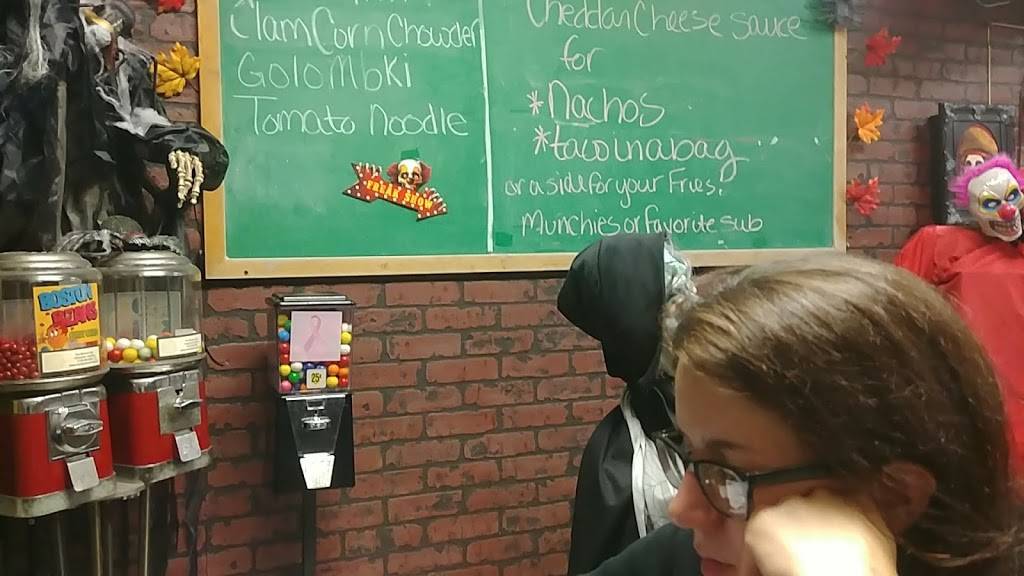 Clam Corn Chowder
Golombki
Tomato Noodle
FREAK SHOW
Cheddar Cheese sauce
for
*Nachos
*taco in a bag
or a side for your Fries.
Munchies or Favorite sub
BOSTON
BEANS
25¢